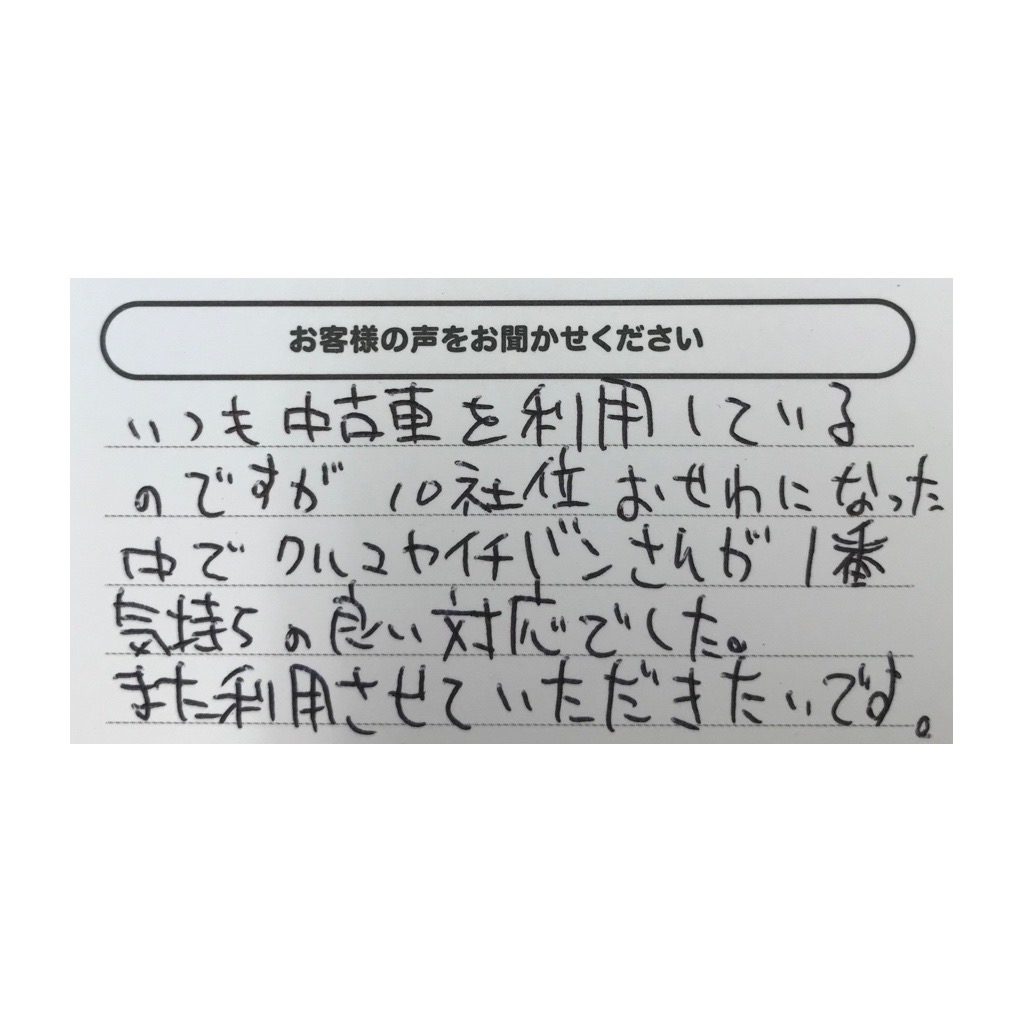 お客様の声をお聞かせください
いつも中古車を利用している
のですが 10社位 おせわになった
中で クルマヤイチバンさんが 1番
気持ちの良い対応でした。
また利用させていただきたいです。